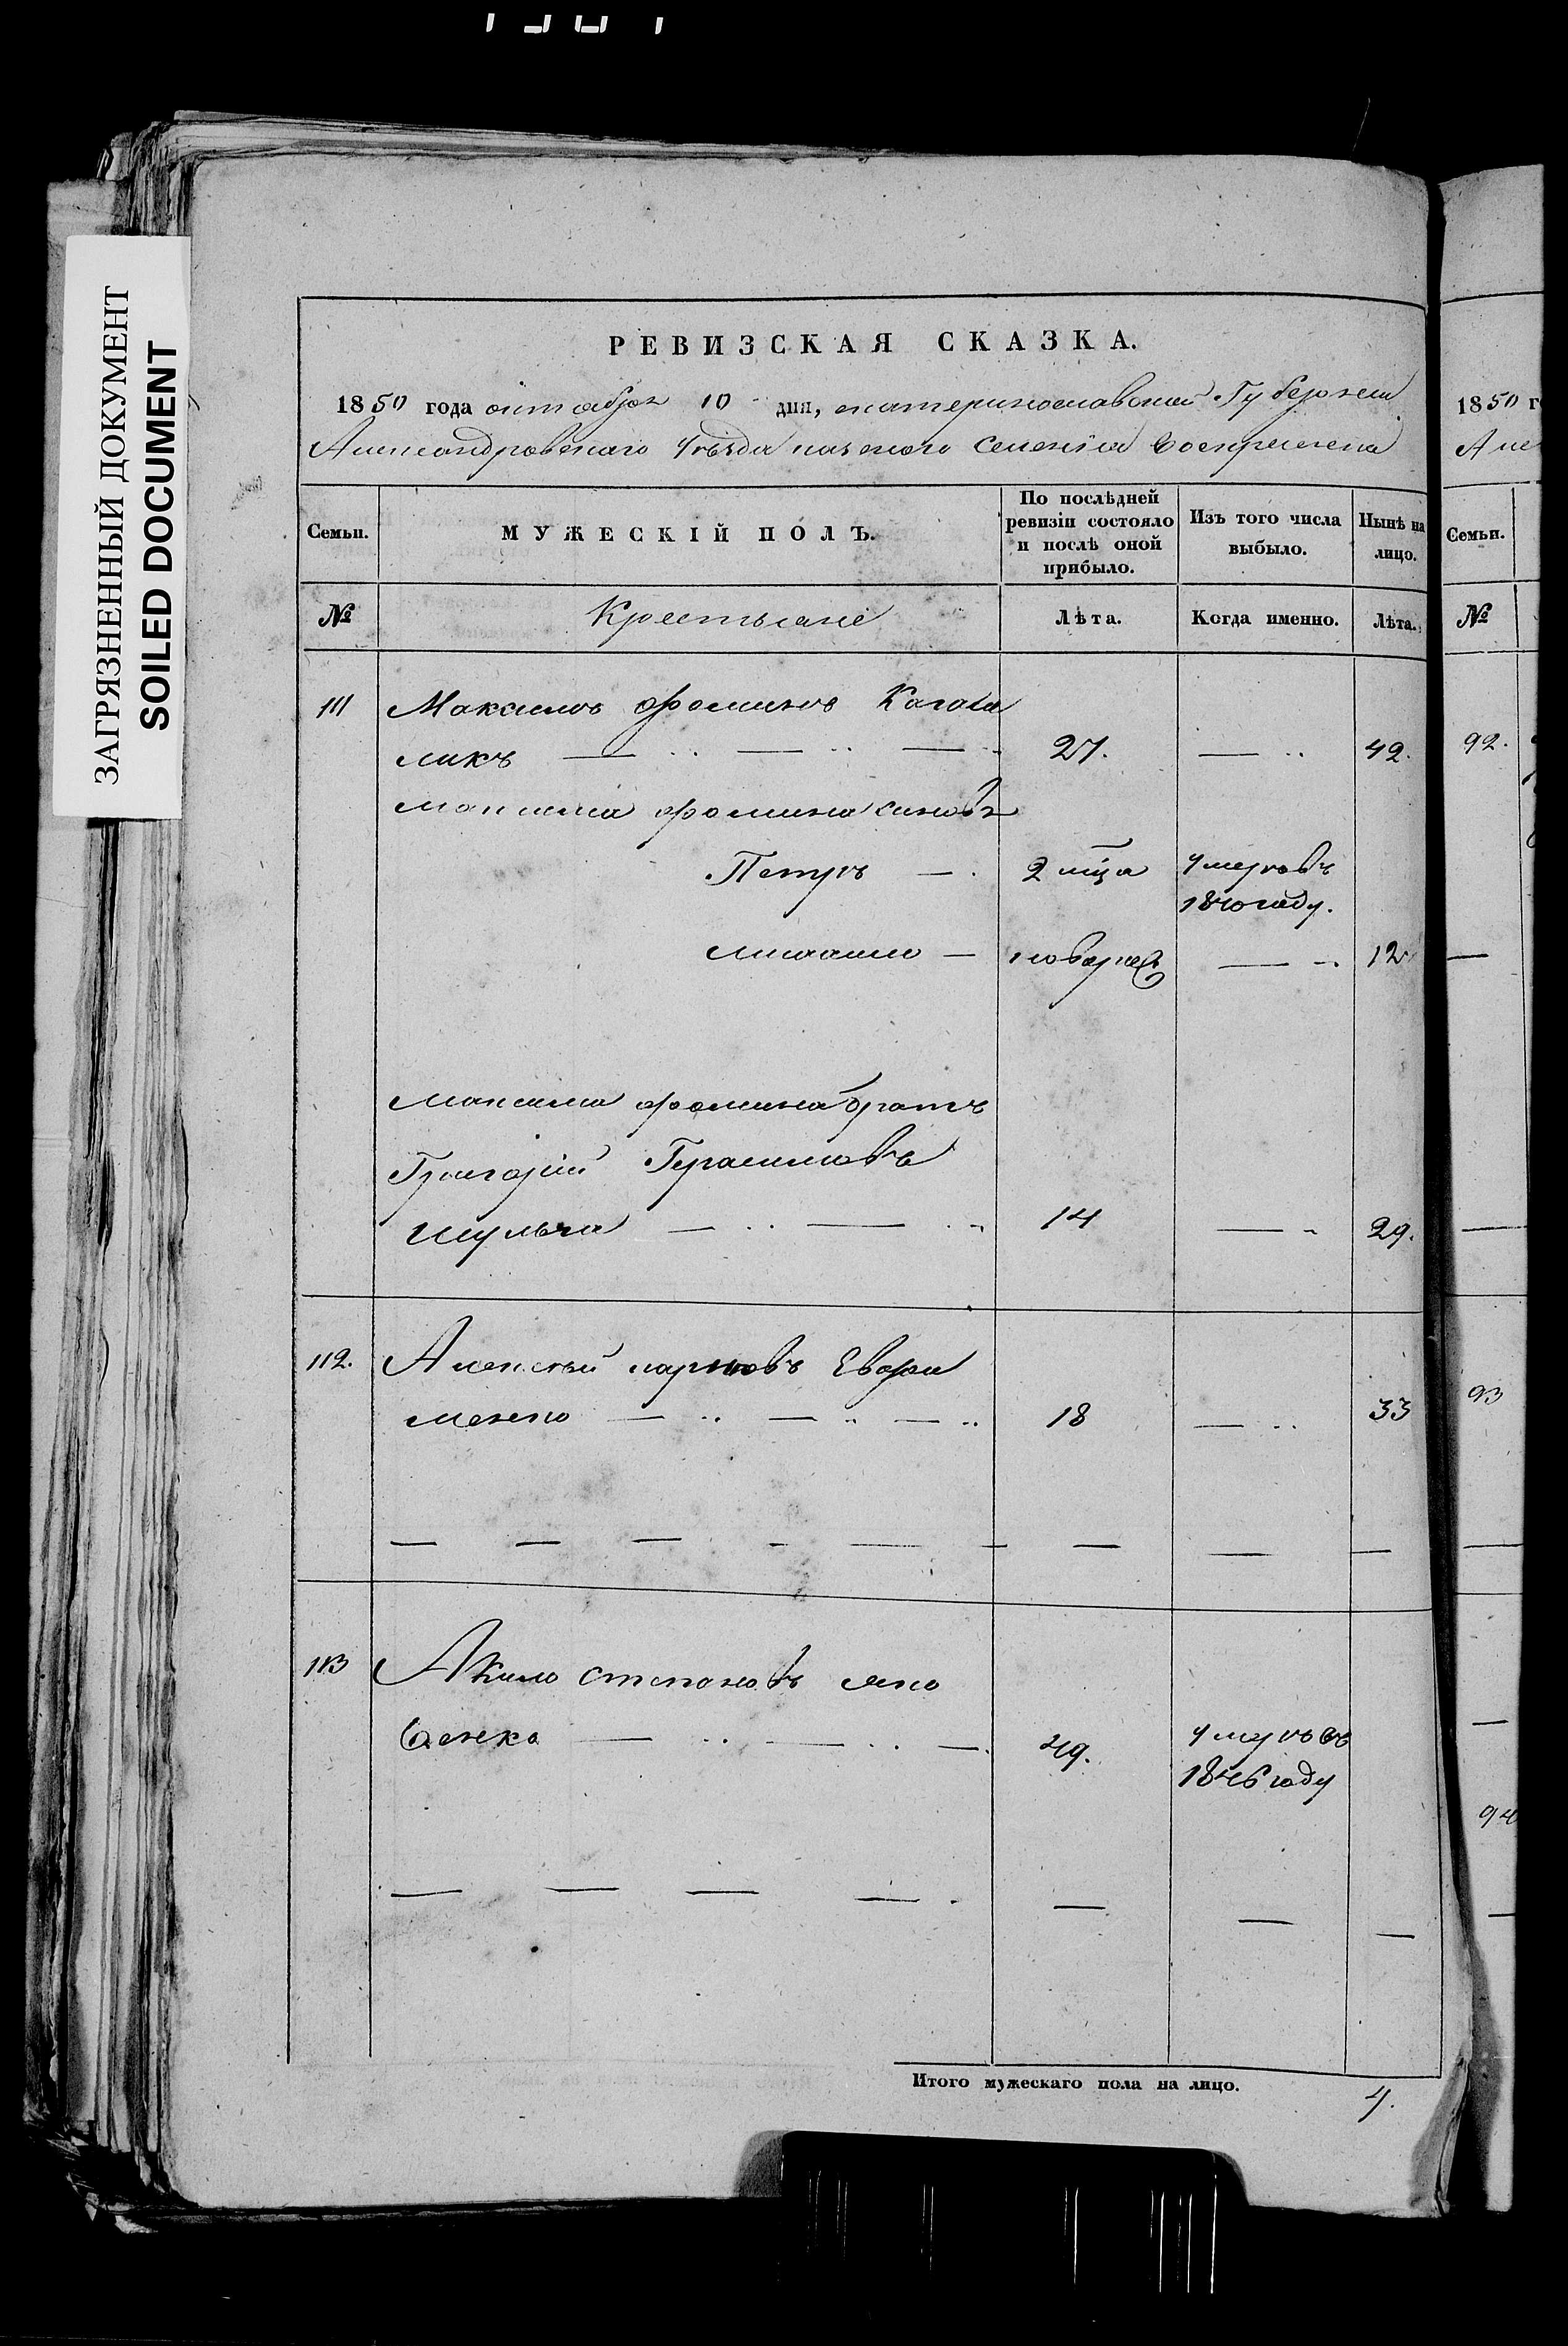 ЗАГРЯЗНЕННЫЙ ДОКУМЕНТ
SOILED DOCUMENT
РЕВИЗСКАЯ СКАЗКА.
1850 года октября 10 дня, екатеринославской Губернiи
Александровскаго уѣзда казеного селенiя
Семьи. МУЖЕСКIЙ ПОЛЪ. По послѣдней ревизiи состояло и послѣ оной прибыло. Изъ того числа выбыло. Нынѣ на лицо.
№ Крестьяне Лѣта. Когда именно. Лѣта.
111 Максимъ фоминъ
ликъ — 27. — 42.
максима фомина синовъ
Петръ — 2 мца умеръ въ
1840 году.
— — 12
максима фомина братъ
Григорiй Герасимовъ
шульга — 14 — 29.
112. Алексѣй карповъ Ефри
менко — 18 — 33
— — — — — — — — —
113 Акимъ степановъ яко
венко — 49. умеръ въ
1846 году
— — — — — — —
Итого мужескаго пола на лицо. 4.
1850 г
Але
Семьи.
№
92.
93
94